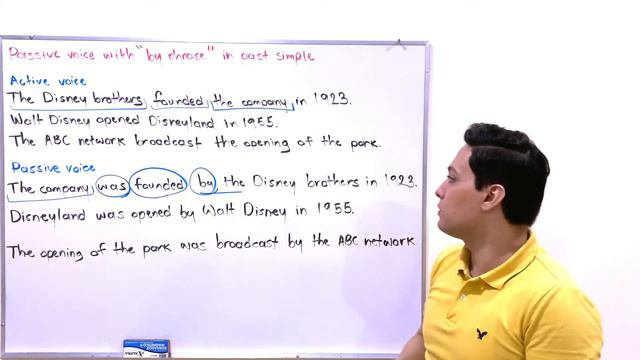 Passive voice with "by phrase" in past simple
Active voice
The Disney brothers founded the company in 1923.
Walt Disney opened Disneyland in 1955.
The ABC network broadcast the opening of the park.
Passive voice
The company was founded by the Disney brothers in 1923.
Disneyland was opened by Walt Disney in 1955.
The opening of the park was broadcast by the ABC network.